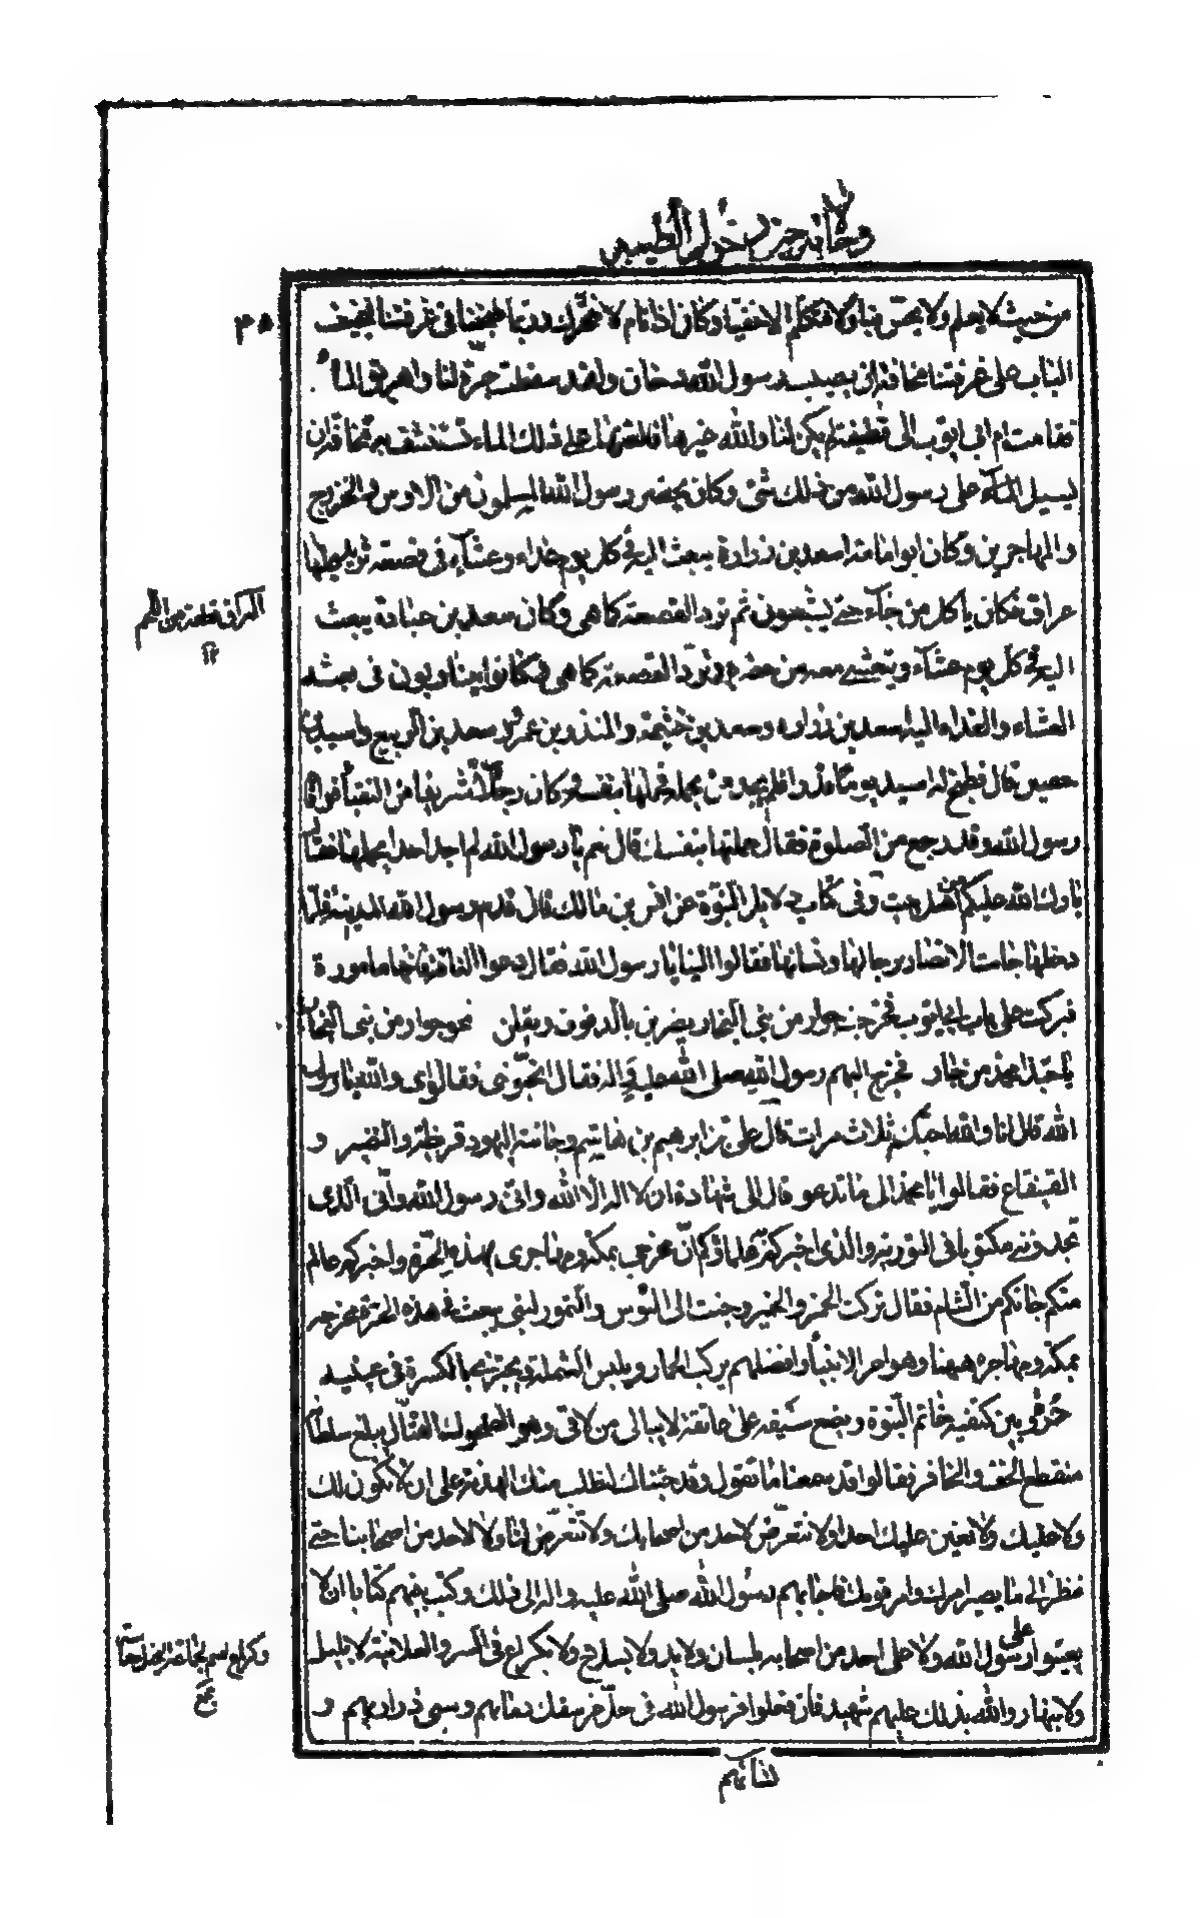 من حيث لا يعلم ولا يحسّ بنا ولا نتكلّم الا خفيّا وكان اذا نام لا نتحرّك وربّما طبخنا فى غرفتنا فيصف
الباب على غرفتنا مخافة ان يصيب رسول الله دخان ولقد سقطت جرّة لنا واهريق الماء
فقامت ام ابى ايّوب الى قطيفة لم يكن لنا والله غيرها فالقتها على ذلك الماء تستنشف به مخافة ان
يسيل الماء على رسول الله من ذلك شئ وكان يحضر رسول الله المسلمون من الاوس والخزرج
والمهاجرين وكان ابو امامة اسعد بن زرارة يبعث اليه فى كل يوم غداء وعشاء فى قصعة ثريد عليها
عراق فكان ياكل من جاء حتى يشبعون ثم ترد القصعة كما هى وكان سعد بن عبادة يبعث
اليه فى كل يوم عشاء ويتعشى معه من حضره وترد القصعة كما هى فكانوا يتناوبون فى بعثه
العشاء والغداء اليه اسعد بن زرارة وسعد بن خيثمة والمنذر بن عمرو وسعد بن الربيع واسيد بن
حضير قال فطبخ له اسيد يوما قدرا فلم يجد من يحملها فحملها بنفسه وكان رجلا شريفا من النقباء فوافاه
رسول الله وقد رجع من الصلوة فقال حملتها بنفسك قال نعم يا رسول الله لم اجد احدا يحملها فقال
بارك الله عليكم من اهل بيت وفى كتاب دلايل النبوّة عن انس بن مالك قال قدم رسول الله المدينة فلمّا
دخلها جاءت الانصار برجالها ونسائها فقالوا الينا يا رسول الله فقال دعوا الناقة فانها مامورة
فبركت على باب ابى ايوب فخرجن جوار من بنى النجار يضربن بالدفوف ويقلن نحن جوار من بنى النجار
يا حبّذا محمد من جار فخرج اليهم رسول الله صلى الله عليه واله فقال اتحبّونى فقالوا اى والله يا رسول
الله قال انا والله احبّكم ثلاث مرات قال على بن ابراهيم بن هاشم وجائته اليهود قريظة والنضير و
القينقاع فقالوا يا محمد الى ما تدعو قال الى شهادة ان لا اله الا الله وانى رسول الله وانى الّذى
تجدوننى مكتوبا فى التورية والذى اخبركم به علماؤكم انّ مخرجى بمكة ومهاجرى بهذه الحرّة واخبركم عالم
منكم جائكم من الشام فقال تركت الخمر والخمير وجئت الى البؤس والتمور لنبى يبعث فى هذه الحرة مخرجه
بمكة ومهاجره ههنا وهو اخر الانبياء وافضلهم يركب الحمار ويلبس الشملة ويجتزئ بالكسرة فى عينيه
حمرة وبين كتفيه خاتم النبوّة ويضع سيفه على عاتقه لا يبالى من لاقى وهو الضحوك القتّال يبلغ سلطانه
منقطع الخف والحافر فقالوا قد سمعنا ما تقول وقد جئناك لنطلب منك الهدنة على ان لا نكون لك
ولا عليك ولا نعين عليك احدا ولا نتعرّض لاحد من اصحابك ولا تتعرّض لنا ولا لاحد من اصحابنا حتى
ننظر الى ما يصير امرك وامر قومك فاجابهم رسول الله صلى الله عليه واله الى ذلك وكتب بينهم كتابا ان لا
يعينوا على رسول الله ولا على احد من اصحابه بلسان ولا يد ولا بسلاح ولا بكراع فى السر والعلانية لا بليل
ولا بنهار والله بذلك عليهم شهيد فان فعلوا فرسول الله فى حلّ من سفك دمائهم وسبى ذراريهم و
نسائهم
العراق قطعة من اللحم